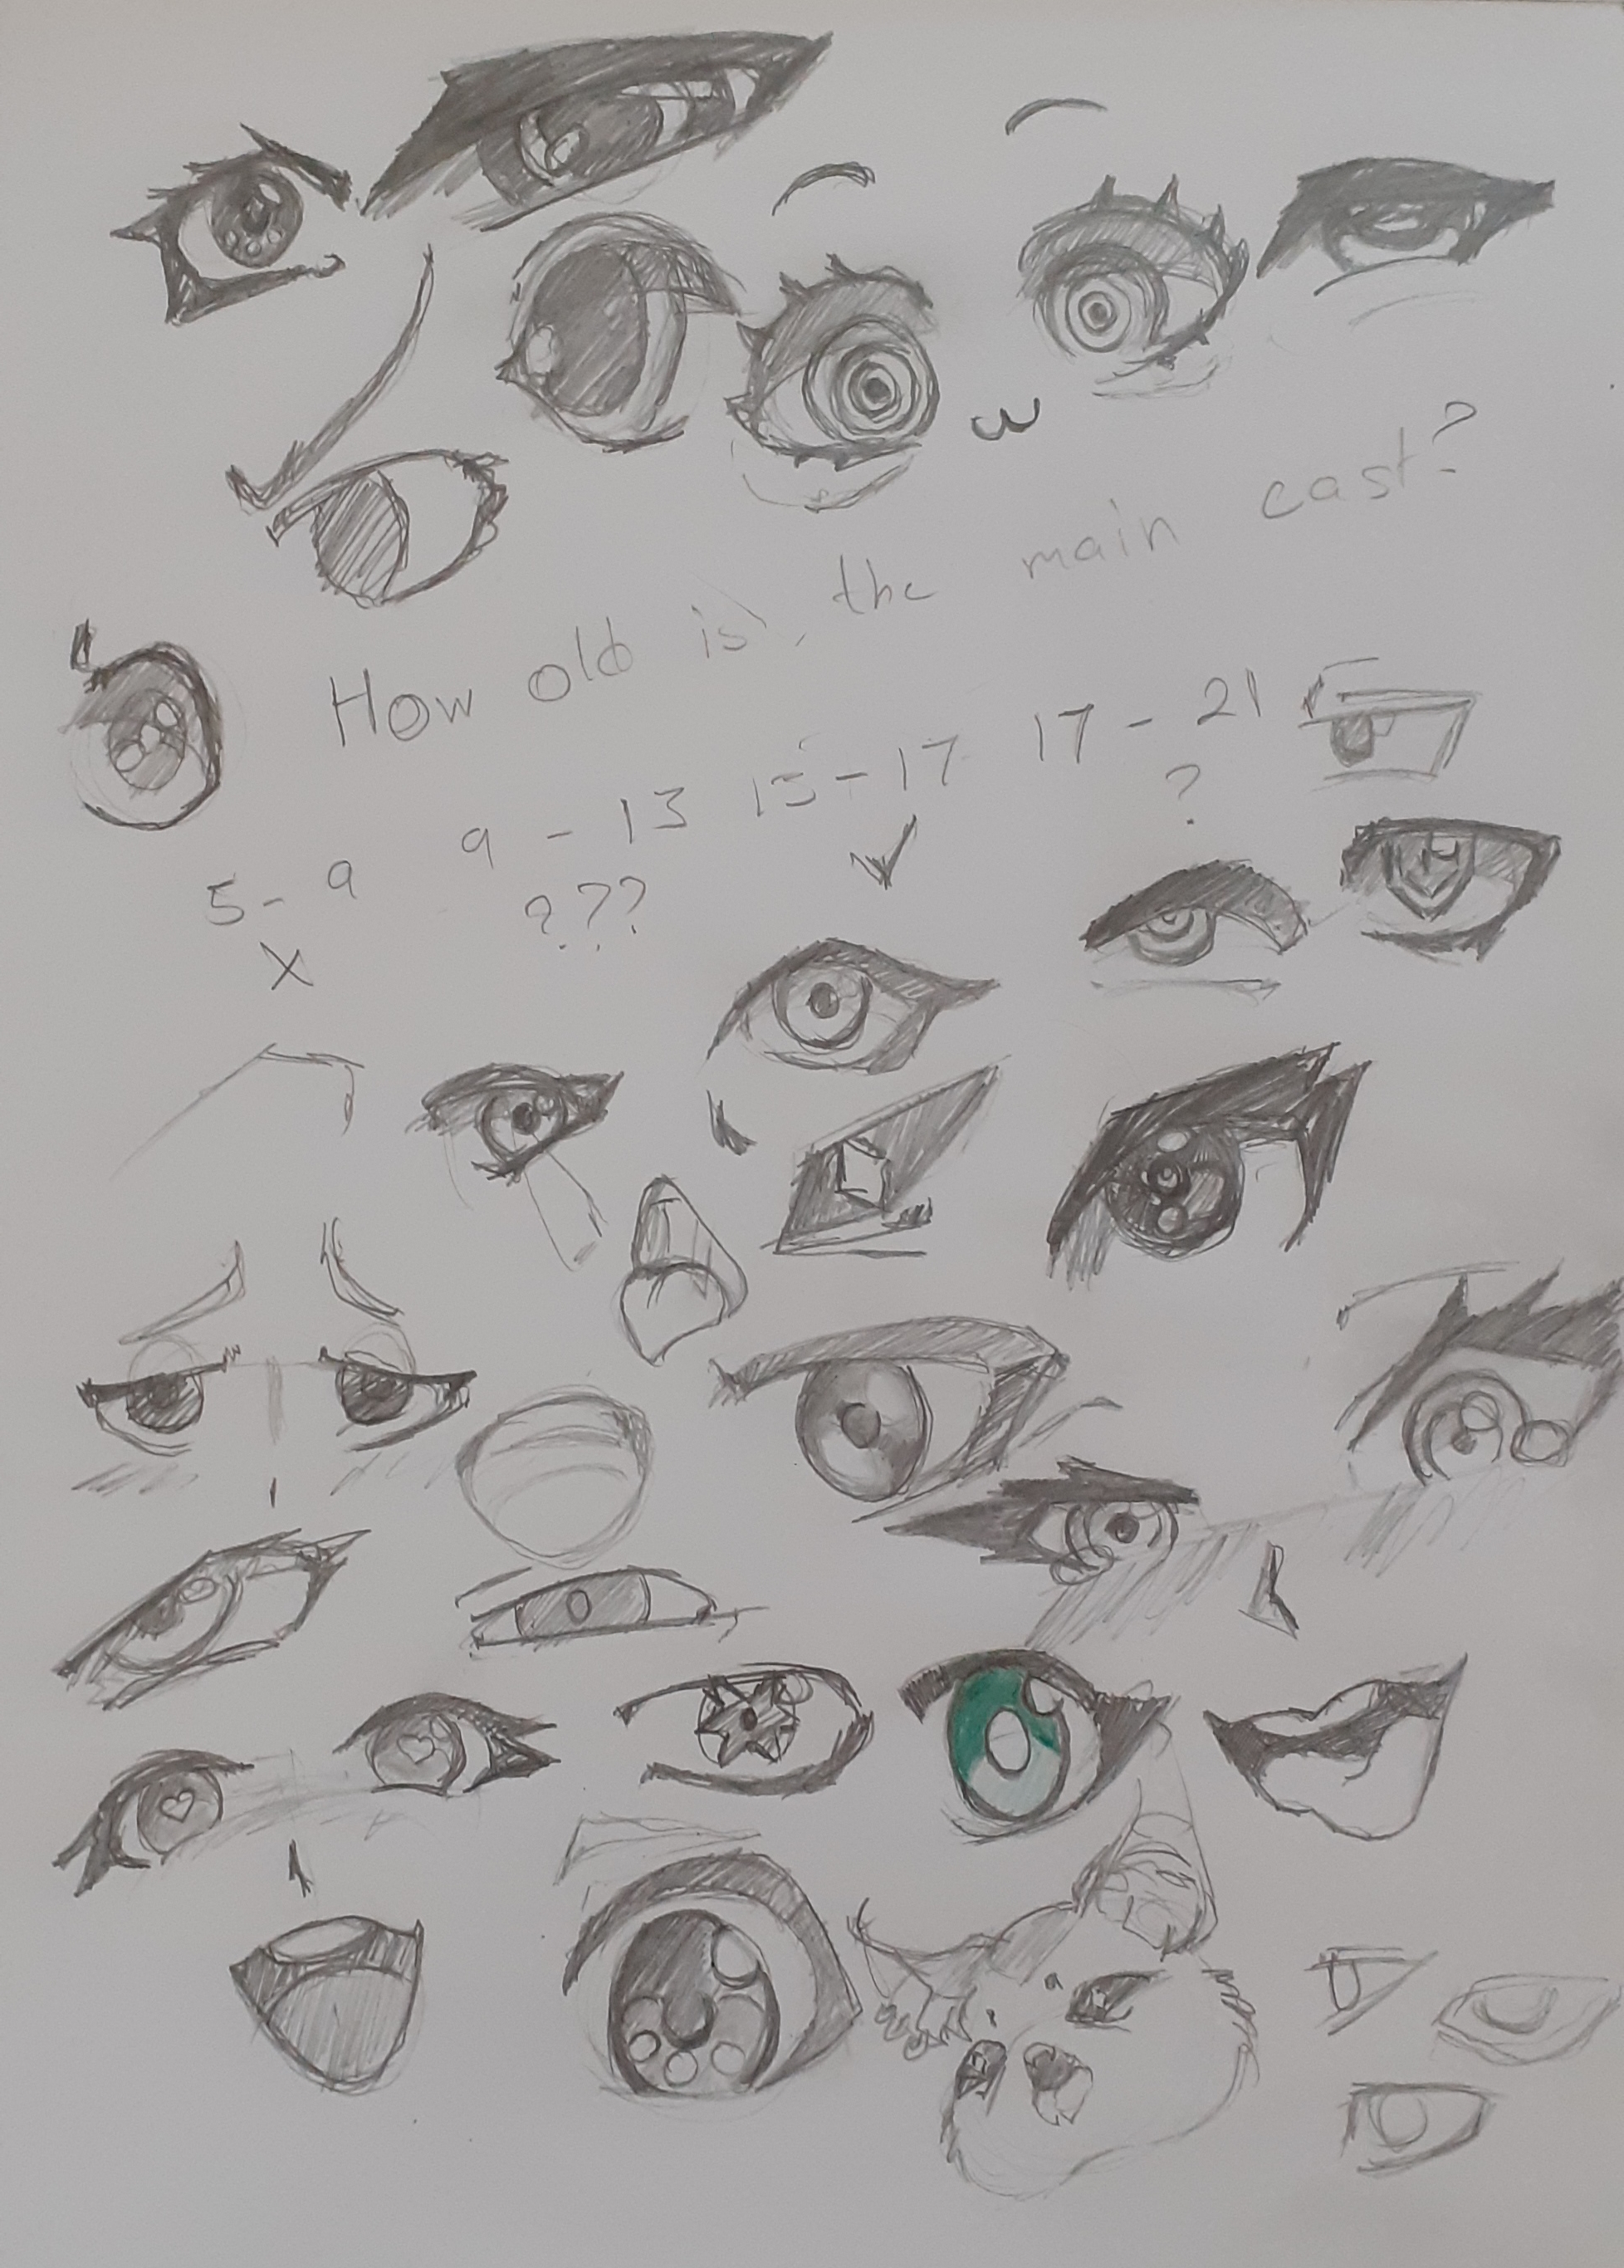 How old is, the main cast?
5 - 9 9 - 13 15 - 17 17 - 21
x ??? ✓ ?